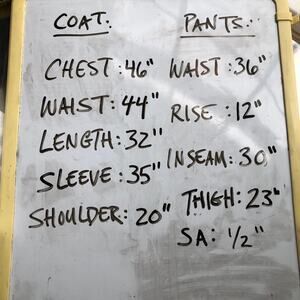 COAT.
CHEST: 46"
WAIST: 44"
LENGTH: 32"
SLEEVE: 35"
SHOULDER: 20"
PANTS:
WAIST: 36"
RISE: 12"
INSEAM: 30"
THIGH: 23"
SA: 1/2"